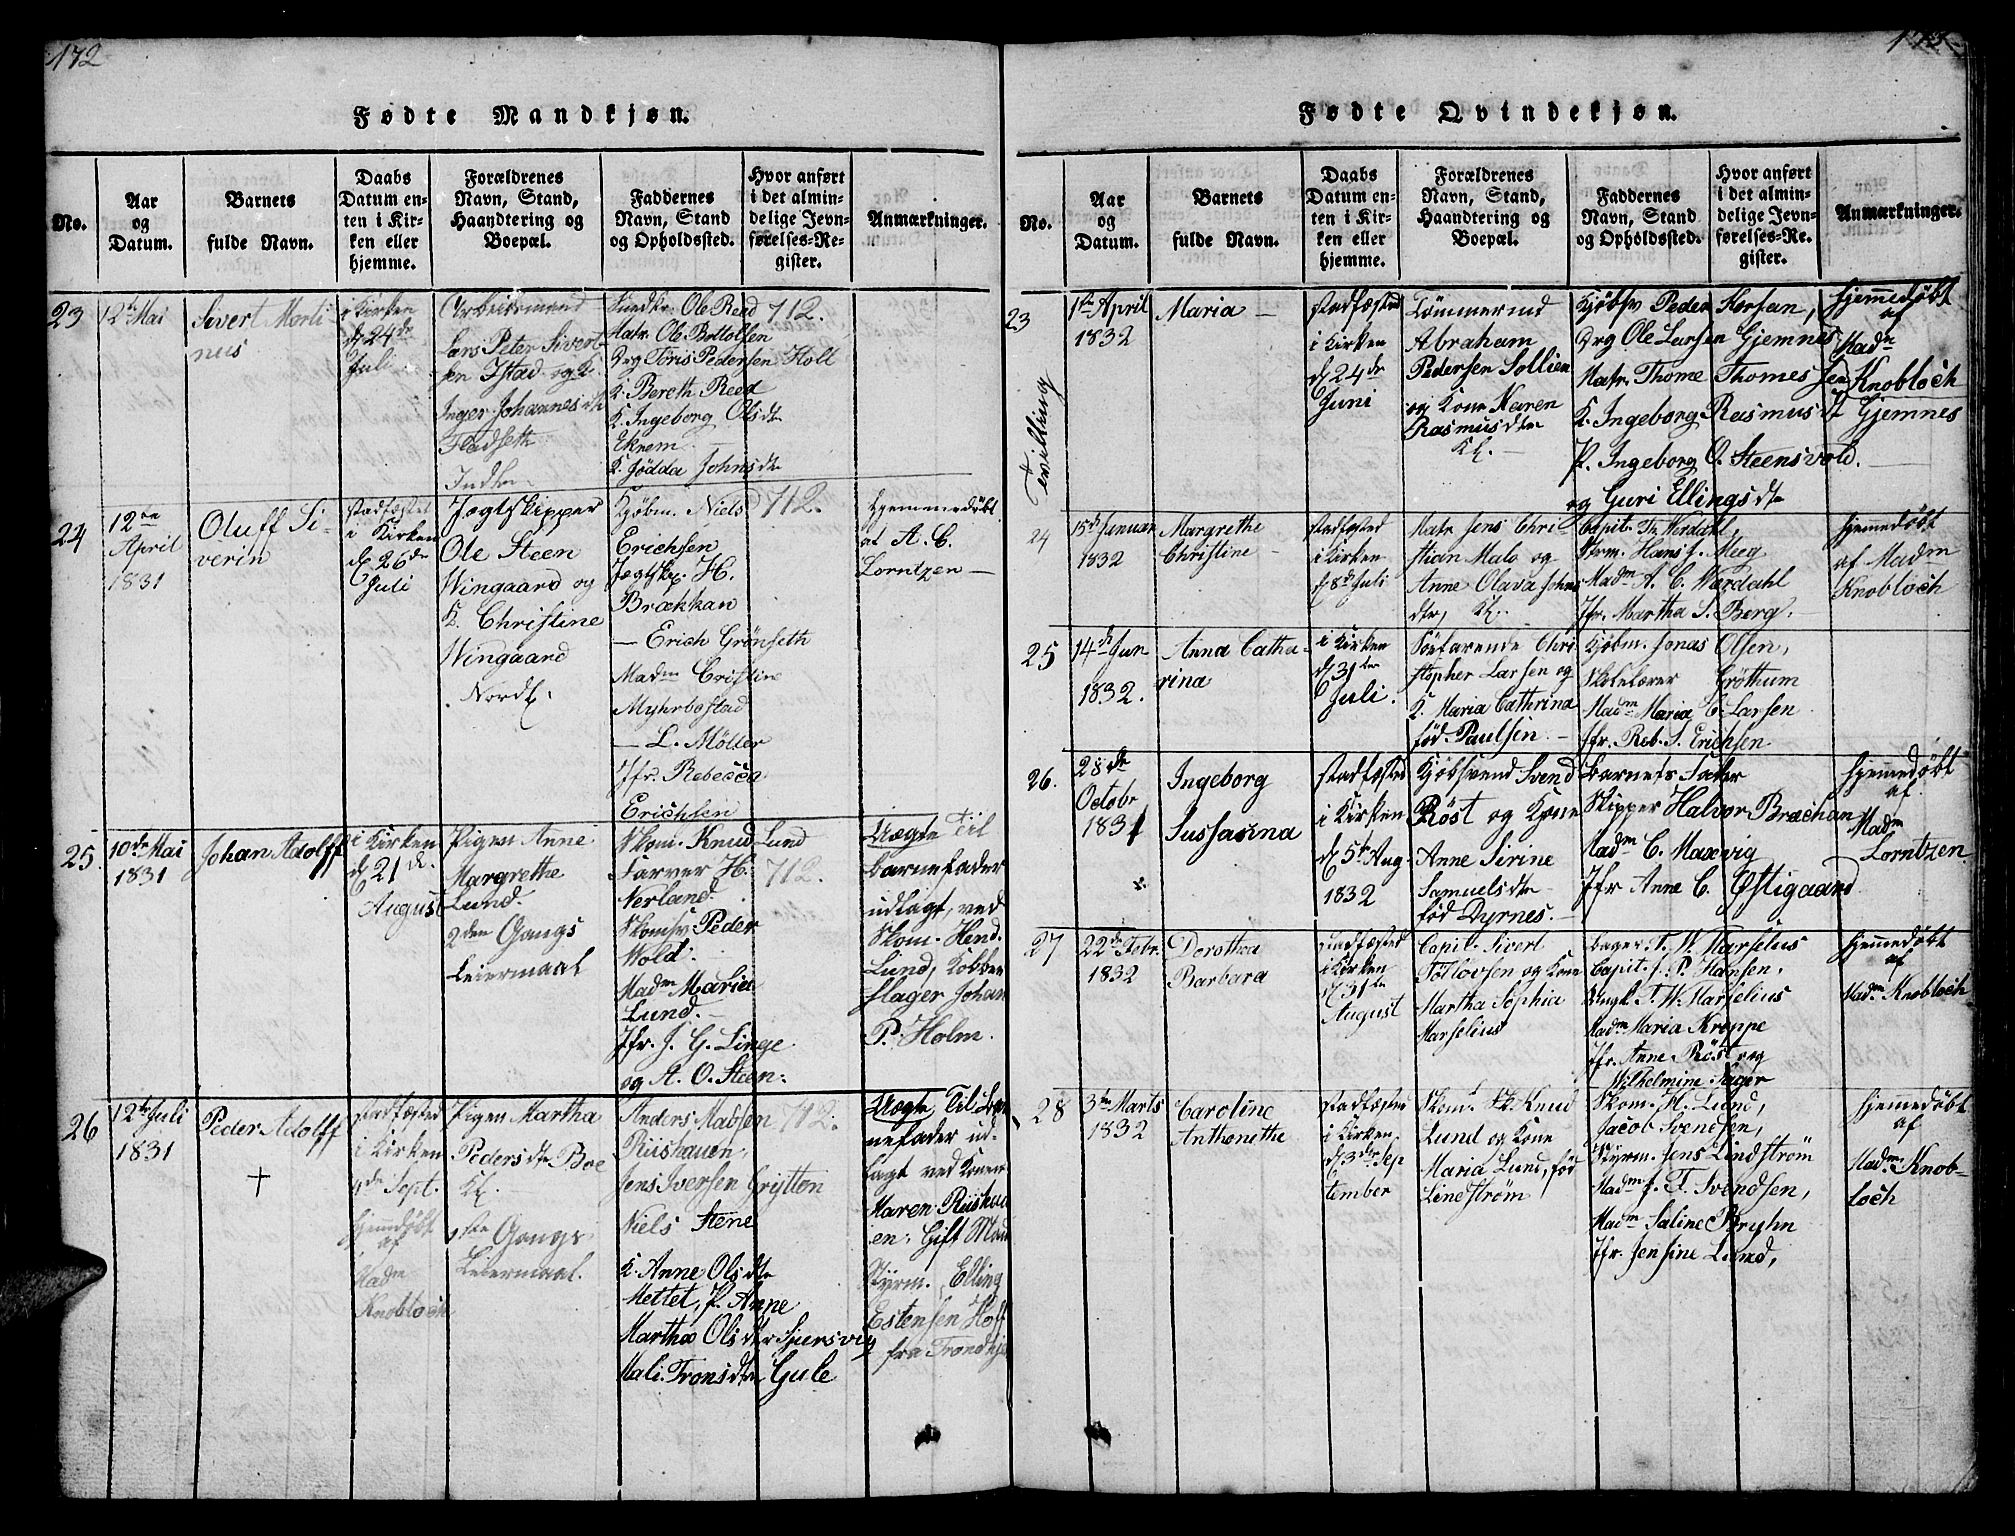 172
Fødte Mandkjøn.
No.
Aar
og
Datum.
Barnets
fulde Navn.
Daabs
Datum en-
ten i Kir-
ken eller
hjemme.
Forældrenes
Navn, Stand,
Haandtering og
Boepæl.
Faddernes
Navn, Stand
og Opholdssted.
Hvor anført
i det almin-
delige Jevn-
førelses-Re-
gister.
Anmærkninger.
23
12te Mai
Sivert Morti-
nus
i Kirken
d 24de
Juli
Arbeidsmand
Lars Peter Sivert-
sen Istad og K.
Inger Johannesdtr
Fledseth
Ole Reed
Matr. Ole Bottolfsen
Drg Toris Pedersen Holt
K. Bereth Reed
K. Ingeborg Olsdtr
Ekrem
K. Jödda Johnsdtr
712.
24
12te
April
1831
Oluff Si-
verin
stadfæstet
i Kirken
d 26de
Juli
Jagtskipper
Ole Steen
Wingaard og
K. Christine
Wingaard
Nordl.
Kjøbm. Niels
Erichsen
Jægtskp. H.
Brækkan
— Erich Grönseth
Madm Cristine
Myhrbostad
— L. Möller
Jfr. Rebecca
Erichsen
712.
Hjemmedøbt
af A. C.
Lorntzen —
25
10de Mai
1831
Johan Adolff
i Kirken
d 21de
August
Pigen Anne
Margrethe
Lund.
2den Gangs
Leiermaal
Skom. Knud Lund
Farver H.
Nerland.
Skomsv Peder
Wold.
Madm Maria
Lund. —
Jfr. J. G. Linge
og A. O. Steen.
712.
Uægte Til
Barnefader
udlagt, ved
Skom. Hend.
Lund, Kobber
slager Johan
P. Holm.
26
12te Juli
1831
Peder Adolff
+
stadfæsted
i Kirken
4de Sept.
hjemdøbt
af
Madm
Knobloch
Pigen Martha
Pedersdtr Boe
Kl.
1ste Gangs
Leiermaal.
Anders Madsen
Riishauen,
Jens Iversen Grytten
Niels Stene
K. Anne Olsdtr
Mettet, P. Anne
Martha Olsdtr Sjursvig
Mali Tronsdtr Gule
712.
Uægte Til Bar
nefader ud-
lagt ved Konen
Maren Riishau
en. Gift Mand
Styrm. Elling
Estensen Hoff
fra Trondhje
173
Fødte Qvindekjøn.
No.
Aar
og
Datum.
Barnets
fulde Navn.
Daabs
Datum en-
ten i Kir-
ken eller
hjemme.
Forældrenes
Navn, Stand,
Haandtering og
Boepæl.
Faddernes
Navn, Stand
og Opholdssted.
Hvor anført
i det almin-
delige Jevn-
førelses-Re-
gister.
Anmærkninger.
23
Tvilling
1ste April
1832
Maria —
stadfæsted
i Kirken
d 24de
Juni
Tömmermd
Abraham
Pedersen Sollien
og Kone Maren
Rasmusdtr
Kl. —
Kjøbsv Peder Horsan,
Drg Ole Larsen Gjemnes
Matr. Thome Thomessen
K. Ingeborg Rasmusdt Gjemnes
P. Ingeborg O. Steensvold. —
og Guri Ellingsdtr
Hjemmedøbt
af
Madm
Knobloch
24
15de Januar
1832
Margrethe
Christine —
stadfæsted
i Kirken
d 8de Juli
Matr Jens Chri-
stian Malo og
Anne Olava Johns
dtr, Kl.
Capit. Th. Werdahl,
Styrm. Hans J. Meeg
Madm A. C. Wærdahl
Jfr. Martha S. Berg. —
Hjemedøbt
af Madm
Knobloch
25
14de Jun
1832.
Anna Catha-
rina
i Kirken
d 31te
Juli.
Söefarende Chri
stopher Larsen og
K. Maria Cathrina
fød. Paulsen. —
Kjøbm. Jonas Olsen,
Skolelærer Gröthum
Madm Maria C. Larsen
Jfr. Reb. S. Erichsen
26.
28de
Octobr
1831
Ingeborg
Sussasina
stadfæsted
i Kirken
d 5te Aug.
1832
Kjøbsvend Svend
Röst og Kone
Anne Sirine
Samuelsdtr
fød Dyrnes. —
Barnets Fader
Skipper Halvor Bræchan
Madm C. Maxvig
Jfr Anne C. Østigaard
Hjemmedøbt
af
Madm
Lorntzen
27
22de Febr.
1832
Dorothea
Barbara
stadfæsted
i Kirken
d 31te
August
Capit. Sivert
Totlovsen og Kone
Martha Sophia
Marselius
Bager T. W. Marselius
Capit. J. P. Hansen,
Ungk. T. W. Marselius
Madm Maria Kroppe
Jfr. Anne Röst og
Wilhelmine Fager
Hjemedøbt
af
Madm Knobloch
28
3de Marts
1832
Caroline
Anthonethe
stadfæsted
i Kirken
d 3die Sep
tember
Skom. Knud
Lund og Kone
Maria Lund, fød
Lindström
Skom. H. Lund,
Jacob Svendsen,
Styrm. Jens Lindström
Madm J. T. Svendsen,
Madm Saline Bryhn
Jfr. Jensine Lund,
Hjemmedøbt
af
Madm Knob-
loch